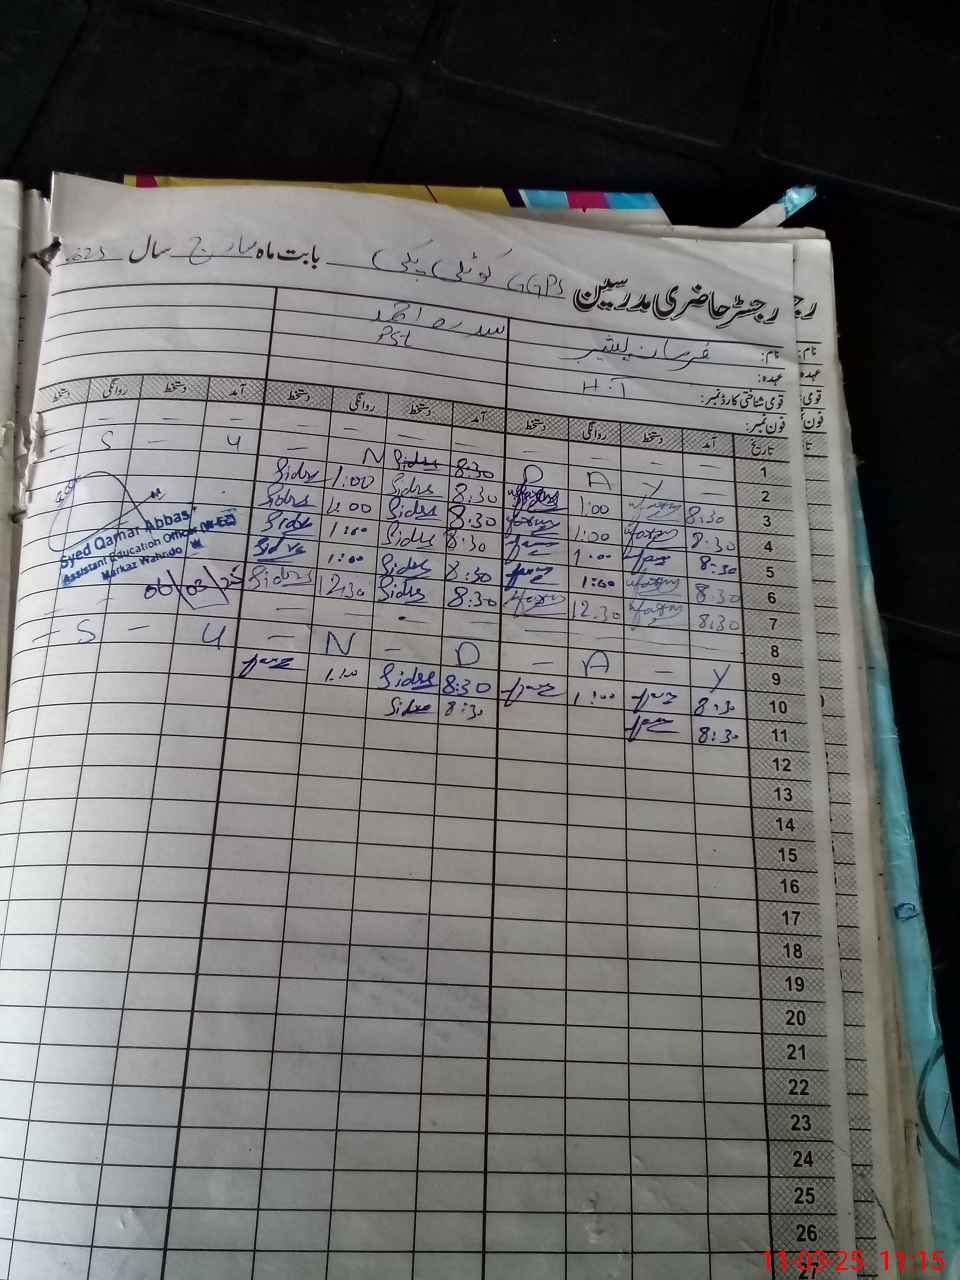 رجسٹر حاضری مدرسین GGPS کوٹلی پکی بابت ماہ مارچ سال
نام: سدرہ احمد
عہدہ: H.T PST
قومی شناختی کارڈ نمبر:
فون نمبر:
تاریخ آمد دستخط روانگی دستخط آمد دستخط روانگی دستخط آمد دستخط روانگی دستخط
1
2 Y A D Sidra N U S
3 8:30 1:00 8:30 Sidra 1:00 Sidra
4 8:30 1:00 8:30 Sidra 1:00 Sidra
5 8:30 1:00 8:30 Sidra 1:00 Sidra
6 8:30 1:00 8:30 Sidra 1:00 Sidra
7 8:30 12:30 8:30 Sidra 12:30 Sidra
8
9 Y A D N U S
10 8:30 1:00 8:30 Sidra 1:00
11 8:30 8:30 Sidra
12
13
14
15
16
17
18
19
20
21
22
23
24
25
26
27
Syed Qamar Abbas
Assistant Education Officer (W-EE)
Markaz Wahndo
06/03/25
رجـ
نام:
عہدہ
قومی
فون
تا
11-03-25 11:15